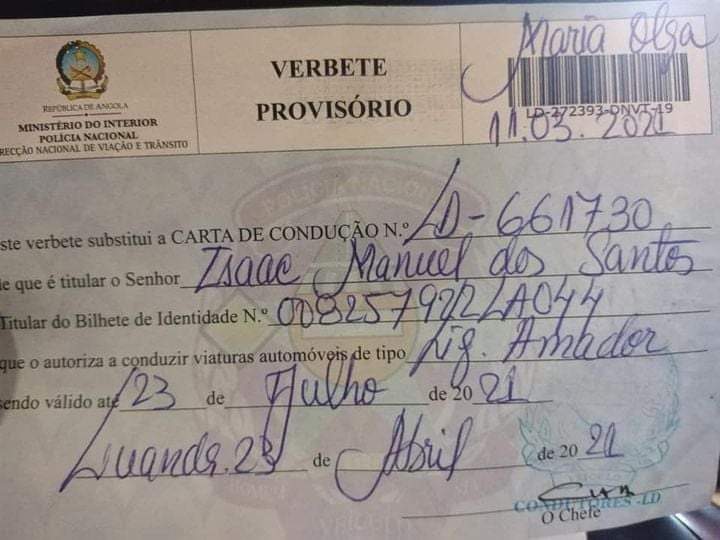 REPÚBLICA DE ANGOLA
MINISTÉRIO DO INTERIOR
POLÍCIA NACIONAL
RECÇÃO NACIONAL DE VIAÇÃO E TRÂNSITO
VERBETE
PROVISÓRIO
Maria Olga
LD-272393-DNVT-19
11.03.2021
POLÍCIA NACIONAL
ste verbete substitui a CARTA DE CONDUÇÃO N.º LD-661730
e que é titular o Senhor Isaac Manuel dos Santos
Titular do Bilhete de Identidade N.º 008257922LA044
que o autoriza a conduzir viaturas automóveis de tipo Lig. Amador
sendo válido até 23 de Julho de 2021
Luanda. 23 de Abril de 2021
CONDUTORES-LD
O Chefe